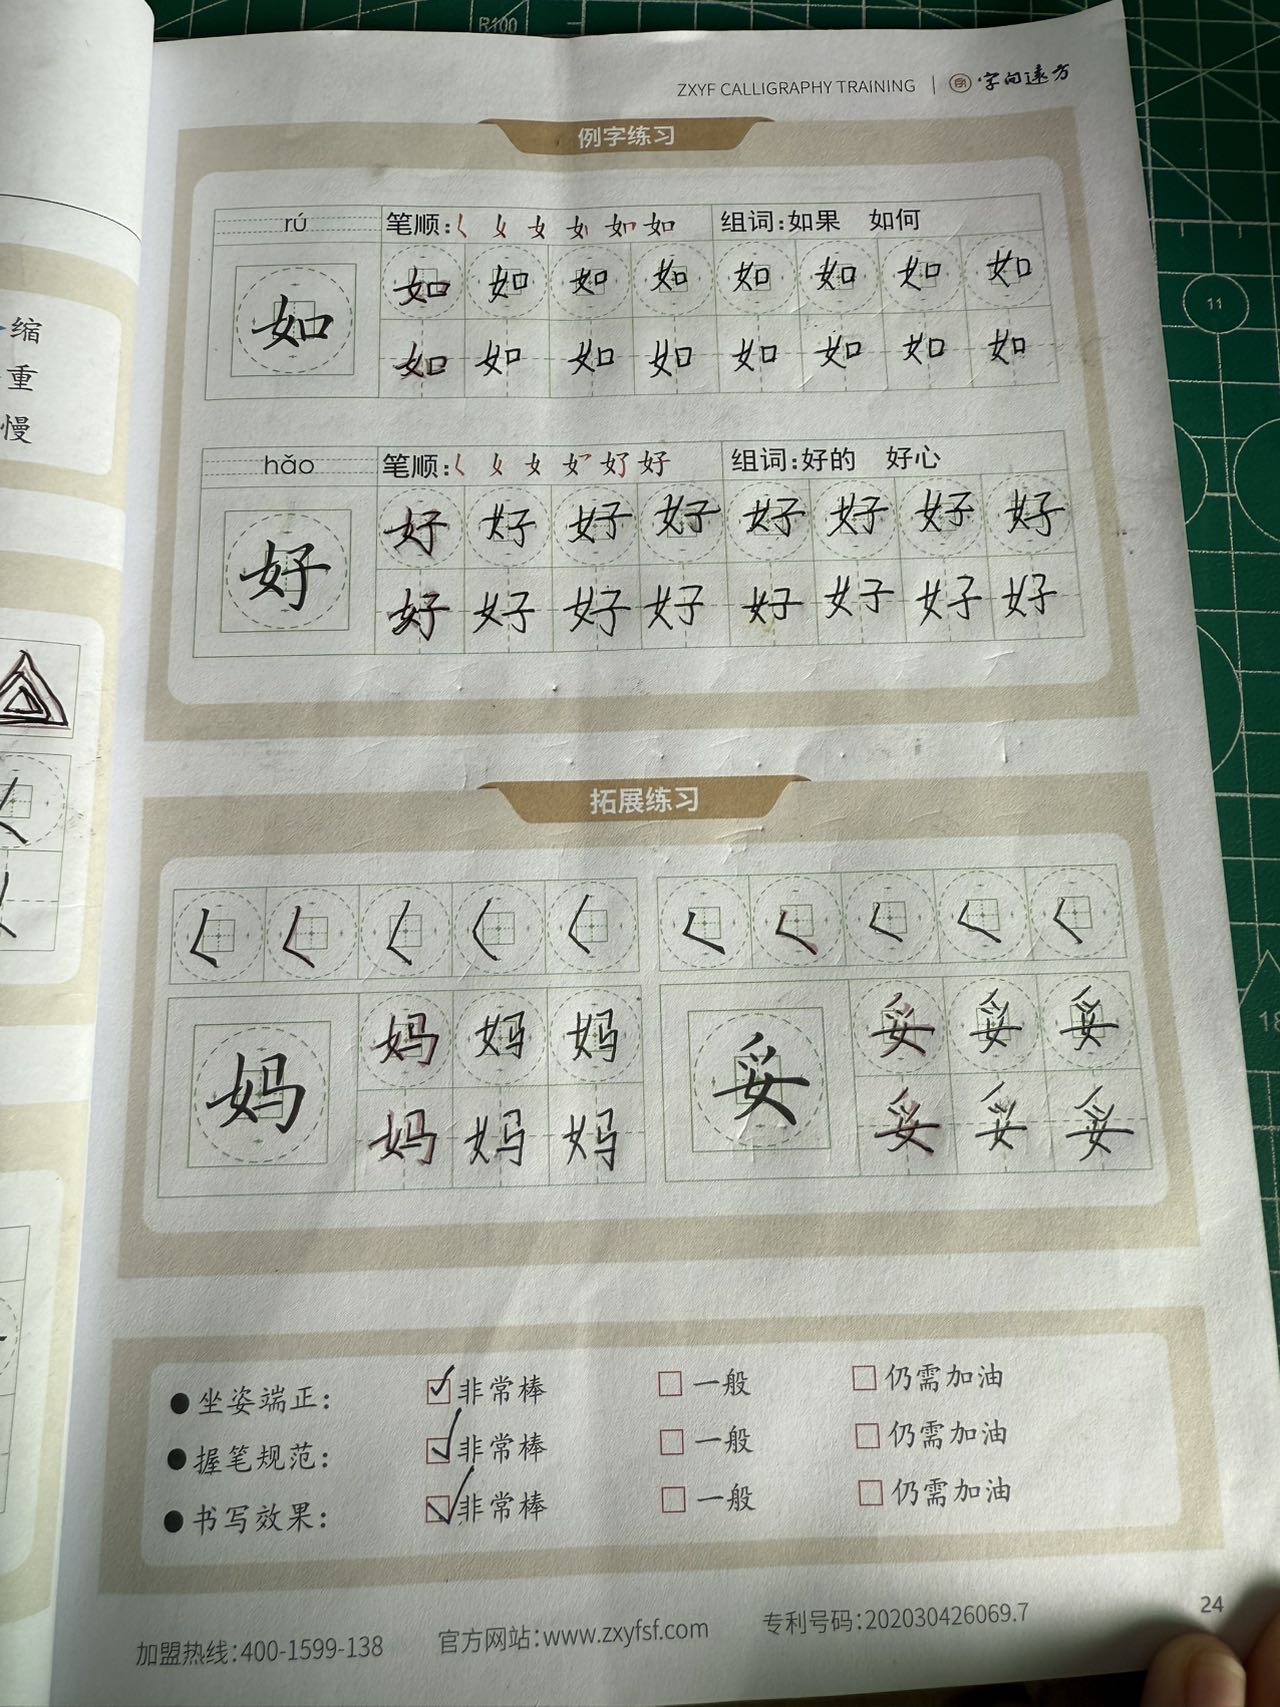 R100
ZXYF CALLIGRAPHY TRAINING | 字向远方
例字练习
rú 笔顺: 组词:如果 如何
如 如 如 如 如 如 如 如 如
如 如 如 如 如 如 如 如
缩
重
慢
hǎo 笔顺: 组词:好的 好心
好 好 好 好 好 好 好 好 好
好 好 好 好 好 好 好 好
11
拓展练习
妈 妈 妈 妈 妥 妥 妥 妥
妈 妈 妈 妥 妥 妥
18
坐姿端正: 非常棒 一般 仍需加油
握笔规范: 非常棒 一般 仍需加油
书写效果: 非常棒 一般 仍需加油
24
加盟热线:400-1599-138 官方网站:www.zxyfsf.com 专利号码:202030426069.7